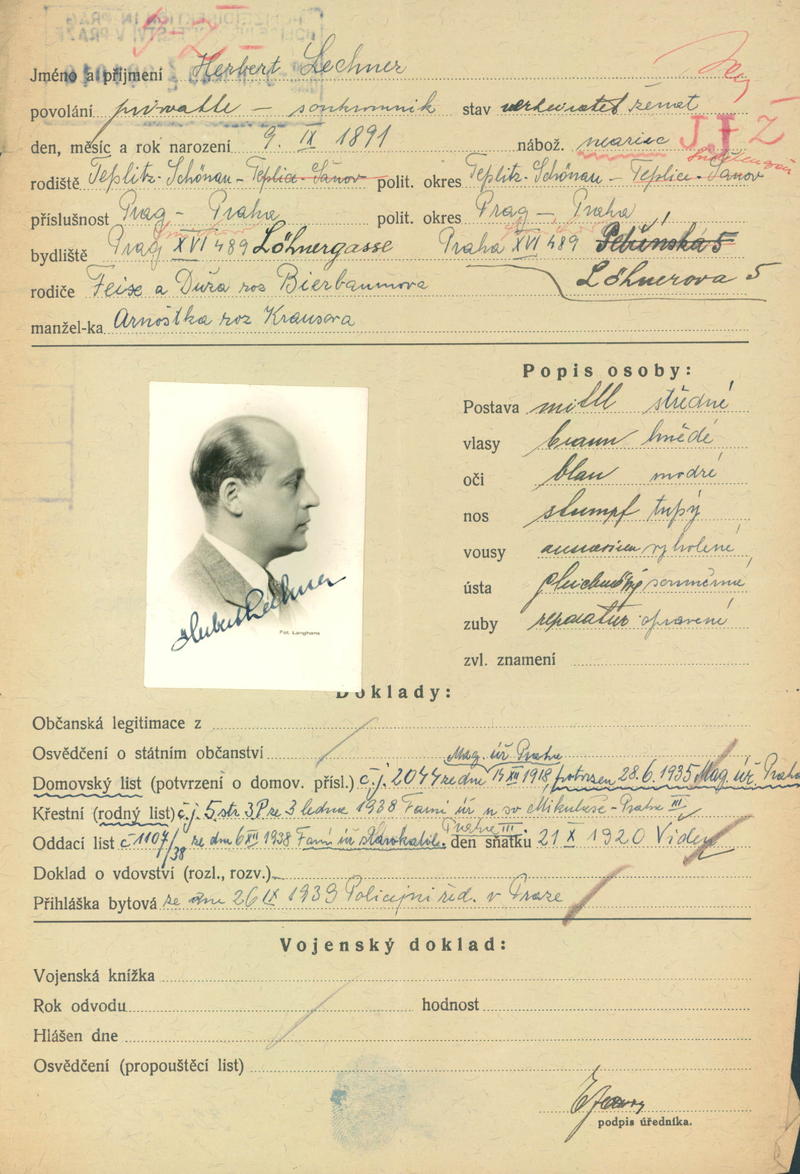 Jméno a příjmení Herbert Lechner
povolání private – soukromník stav verheiratet ženat
den, měsíc a rok narození 9. IX 1891 nábož. J-Z
rodiště Teplitz-Schönau – Teplice-Šanov polit. okres Teplitz-Schönau – Teplice-Šanov
příslušnost Prag – Praha polit. okres Prag – Praha
bydliště Prag XVI 489 Löhnergasse Praha XVI 489 Petřínská 5
Löhnerova 5
rodiče a roz Bierbaumova
manžel-ka Arnoštka roz Krausova
Popis osoby:
Postava mittl střední
vlasy braun hnědé
oči blau modré
nos stumpf tupý
vousy vyholené
ústa souměrné
zuby opravené
zvl. znamení
Herbert Lechner
Fot. Langhans
Doklady:
Občanská legitimace z
Osvědčení o státním občanství
Mag. úř Praha
Domovský list (potvrzení o domov. přísl.) č.j. 2044 ze dne 14 XII 1918, potvrzen 28.6.1935 Mag úř. Praha
Křestní (rodný list) č.j. 5 str 3 P. ze 3 ledna 1938 Farní úř u sv Mikuláše - Praha III
Praha III.
Oddací list č 1107/38 ze dne 6 XII 1938 Farní úř Starokatol. den sňatku 21 X 1920 Videň
Doklad o vdovství (rozl., rozv.)
Přihláška bytová ze dne 26 IX 1939 Policejní řed. v Praze
Vojenský doklad:
Vojenská knížka
Rok odvodu hodnost
Hlášen dne
Osvědčení (propouštěcí list)
podpis úředníka.